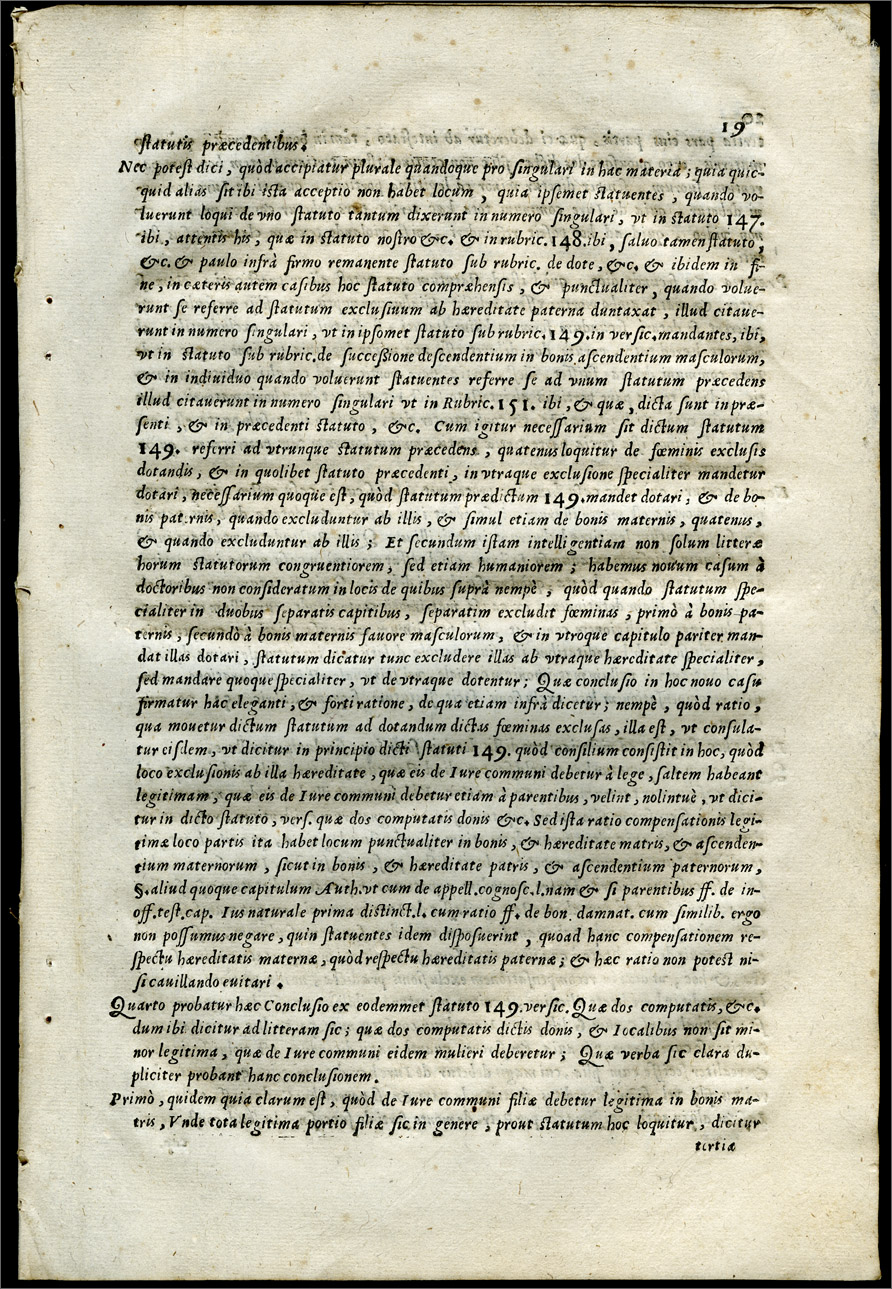 19
statutis præcedentibus.
Nec potest dici, quòd accipiatur plurale quandoque pro singulari in hac materia; quia quic-
quid alias sit ibi ista acceptio non habet locum, quia ipsemet statuentes, quando vo-
luerunt loqui de vno statuto tantum dixerunt in numero singulari, vt in statuto 147.
ibi, attentis his, quæ in statuto nostro &c. & in rubric. 148. ibi, saluo tamen statuto,
&c. & paulo infrà firmo remanente statuto sub rubric. de dote, &c. & ibidem in fi-
ne, in cæteris autem casibus hoc statuto compræhensis, & punctualiter, quando volue-
runt se referre ad statutum exclusiuum ab hæreditate paterna duntaxat, illud citaue-
runt in numero singulari, vt in ipsomet statuto sub rubric. 149. in versic. mandantes, ibi,
vt in statuto sub rubric. de successione descendentium in bonis ascendentium masculorum,
& in indiuiduo quando voluerunt statuentes referre se ad vnum statutum præcedens
illud citauerunt in numero singulari vt in Rubric. 151. ibi, & quæ, dicta sunt in præ-
senti, & in præcedenti statuto, &c. Cum igitur necessarium sit dictum statutum
149. referri ad vtrunque statutum præcedens, quatenus loquitur de fœminis exclusis
dotandis, & in quolibet statuto præcedenti, in vtraque exclusione specialiter mandetur
dotari, necessarium quoque est, quòd statutum prædictum 149. mandet dotari, & de bo-
nis paternis, quando excluduntur ab illis, & simul etiam de bonis maternis, quatenus,
& quando excluduntur ab illis; Et secundum istam intelligentiam non solum litteræ
horum statutorum congruentiorem, sed etiam humaniorem; habemus nouum casum à
doctoribus non consideratum in locis de quibus suprà nempè, quòd quando statutum spe-
cialiter in duobus separatis capitibus, separatim excludit fœminas, primò à bonis pa-
ternis, secundò à bonis maternis fauore masculorum, & in vtroque capitulo pariter man-
dat illas dotari, statutum dicatur tunc excludere illas ab vtraque hæreditate specialiter,
sed mandare quoque specialiter, vt de vtraque dotentur; Quæ conclusio in hoc nouo casu
firmatur hac eleganti, & forti ratione, de qua etiam infrà dicetur; nempè, quòd ratio,
qua mouetur dictum statutum ad dotandum dictas fœminas exclusas, illa est, vt consula-
tur eisdem, vt dicitur in principio dicti statuti 149. quòd consilium consistit in hoc, quòd
loco exclusionis ab illa hæreditate, quæ eis de Iure communi debetur à lege, saltem habeant
legitimam, quæ eis de Iure communi debetur etiam à parentibus, velint, nolintuè, vt dici-
tur in dicto statuto, vers. quæ dos computatis donis &c. Sed ista ratio compensationis legi-
timæ loco partis ita habet locum punctualiter in bonis, & hæreditate matris, & ascenden-
tium maternorum, sicut in bonis, & hæreditate patris, & ascendentium paternorum,
§. aliud quoque capitulum Auth. vt cum de appell. cognosc. l. nam & si parentibus ff. de in-
off. test. cap. Ius naturale prima distinct. l. cum ratio ff. de bon. damnat. cum similib. ergo
non possumus negare, quin statuentes idem disposuerint, quoad hanc compensationem re-
spectu hæreditatis maternæ, quòd respectu hæreditatis paternæ; & hæc ratio non potest ni-
si cauillando euitari.
Quarto probatur hæc Conclusio ex eodemmet statuto 149. versic. Quæ dos computatis, &c.
dum ibi dicitur ad litteram sic; quæ dos computatis dictis donis, & Iocalibus non sit mi-
nor legitima, quæ de Iure communi eidem mulieri deberetur; Quæ verba sic clara du-
pliciter probant hanc conclusionem.
Primò, quidem quia clarum est, quòd de Iure communi filiæ debetur legitima in bonis ma-
tris, Vnde tota legitima portio filiæ sic in genere, prout statutum hoc loquitur, dicitur
tertia